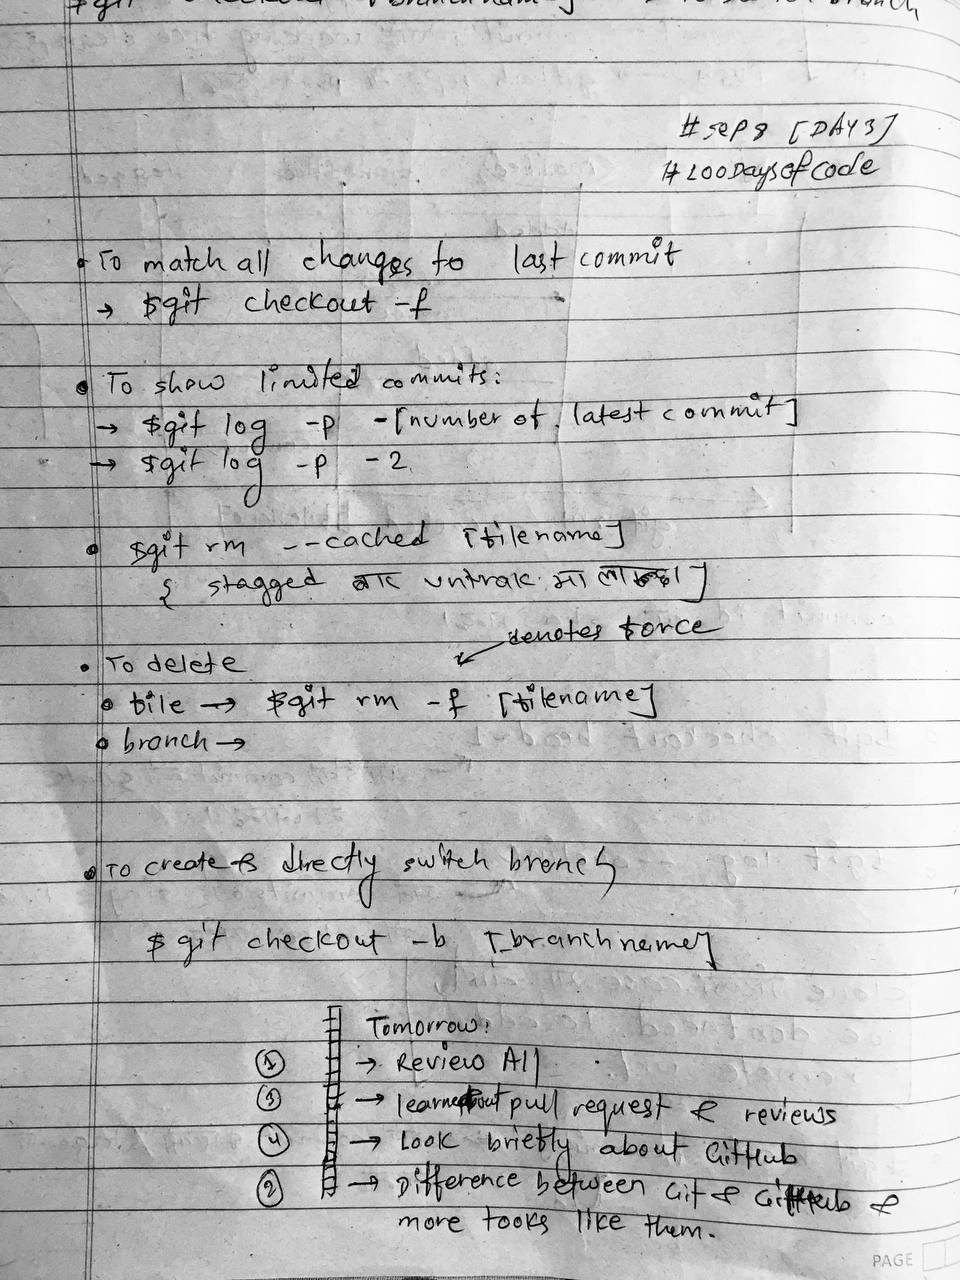 $git checkout [branchname]
#sep 8 [DAY 3]
#100DaysOfCode
• To match all changes to last commit
→ $git checkout -f
• To show limited commits:
→ $git log -p -[number of latest commit]
→ $git log -p -2
• $git rm --cached [filename]
{ stagged बाट untrack मा
denotes force
• To delete
• file → $git rm -f [filename]
• branch →
• To create & directly switch branch
$ git checkout -b [branchname]
Tomorrow:
① → Review All
③ → learn about pull request & reviews
④ → Look briefly about GitHub
② → Difference between Git & GitHub &
more tooks like them.
PAGE